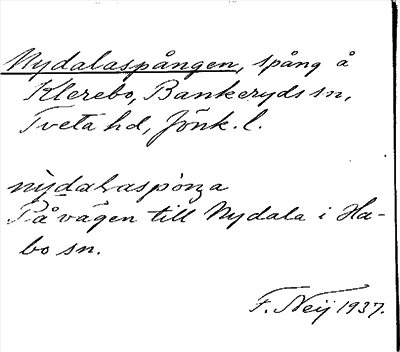 Nydalaspången, spång å
Klerebo, Bankeryds sn,
Tveta hd, Jönk. l.
nỳdalaspòŋa
På vägen till Nydala i Ha-
bo sn.
F. Neij 1937.